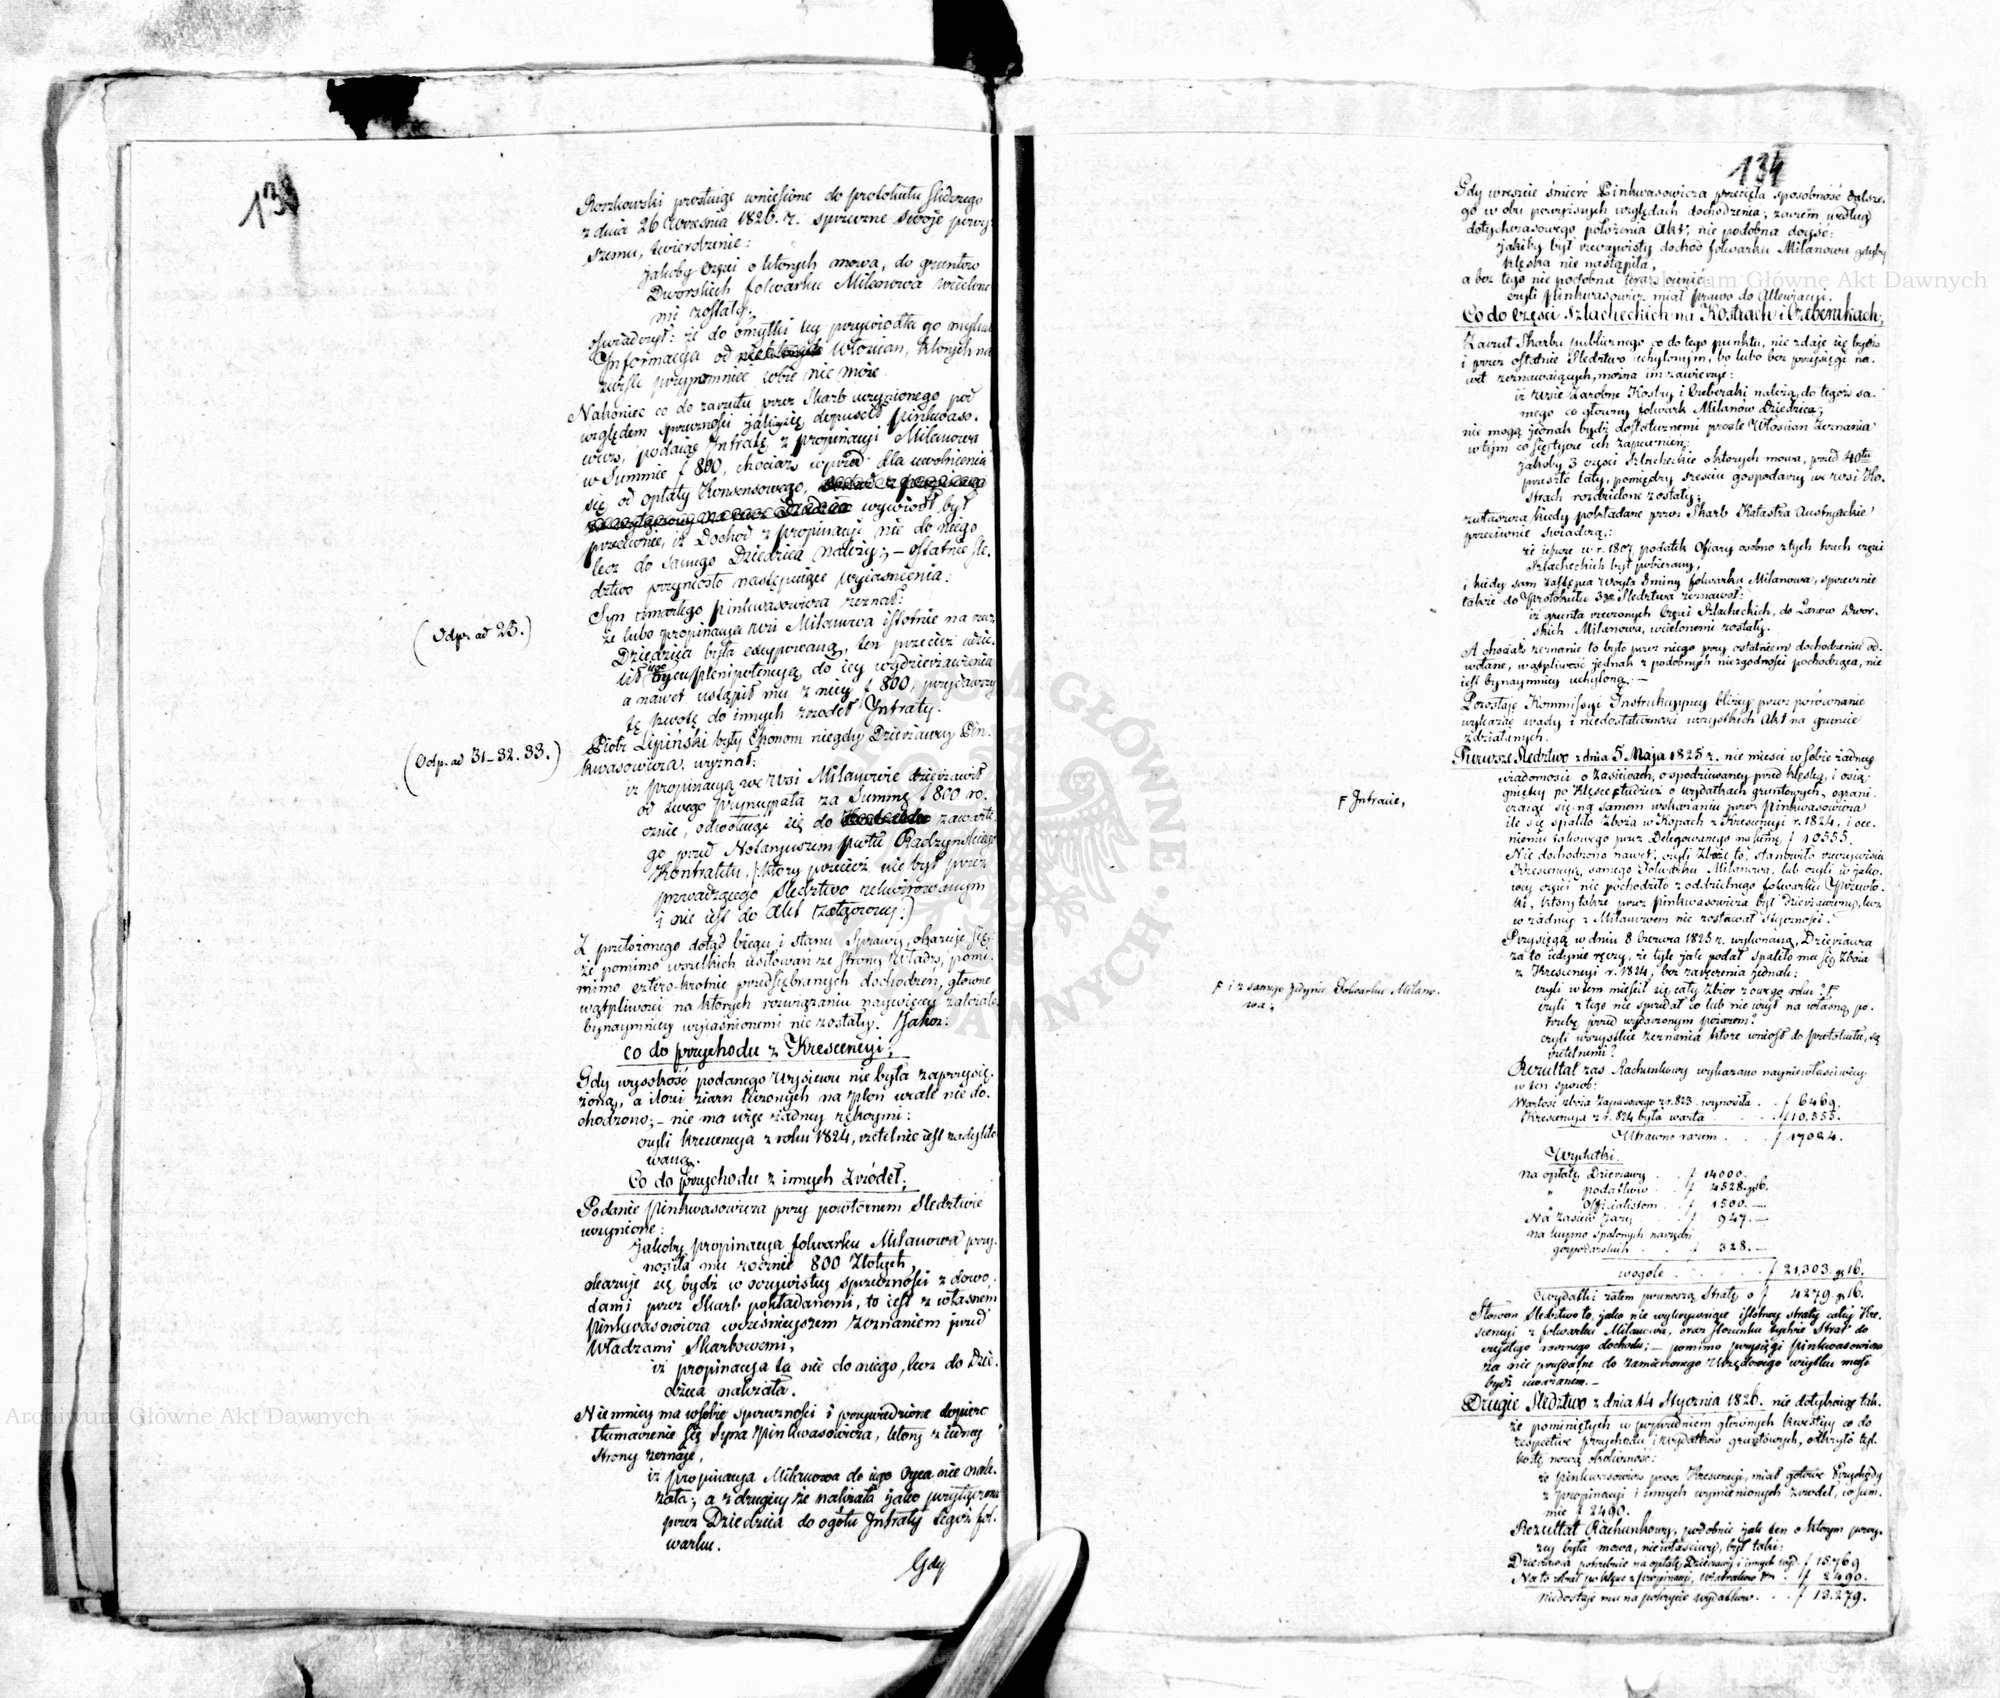 13
Roszkowski prostując wniesione do protokułu śledczego
z dnia 26 Września 1826. r. sprzeczne swoje pierwy
szemu, twierdzenie:
jakoby Części o których mowa, do gruntów
Dworskich folwarku Milanowa wcielone
mi zostały;
oświadczył: że do omyłki tey przywiodła go mylna
Informacya od Włościan, których na-
zwisk przypomnieć sobie nie może.
Nakoniec co do zarzutu przez Skarb uczynionego pod
względem sprzeczności jakiey się dopuścił Pinkwaso-
wicz, podaiąc Intratę z propinacyi Milanowa
w Summie f 800, chociaż wprzód dla uwolnienia
się od opłaty Konsensowego,
wywiódł był
przeciwnie, iż Dochód z propinacyi nie do niego
lecz do samego Dziedzica należy; – ostatnie Śle-
dztwo przyniosło następuiące wyiaśnienia:
Syn zmarłego Pinkwasowicza zeznał:
(Odp. ad 25.)
że lubo propinacya wsi Milanowa istotnie na rzecz
Dziedzica była excypowaną, ten przecież udzie-
lił Oycu plenipotencyą do iey wydzierżawienia
a nawet ustąpił mu z niey f 800, przydawszy
tę kwotę do innych źródeł Intraty.
(Odp. ad 31_32. 33.)
Piotr Lipiński były Ekonom niegdy Dzierżawcy Pin-
kwasowicza, wyznał:
iż propinacyą we wsi Milanowie dzierżawił
od swego Pryncypała za Summę f 800 ro-
cznie, odwołując się do zawarte-
go przed Notaryuszem pwtu Radzyńskiego
Kontraktu, (który przecież nie był przez
prowadzącego Śledztwo rekwirowanym
i nie iest do Akt załączony:)
Z przełożonego dotąd biegu i stanu Sprawy, okazuje się:
że pomimo wszelkich usiłowań ze strony Władz, pomi-
mimo cztero-krotnie przedsiębranych dochodzeń, główne
wątpliwości na których rozwiązaniu naywięcey zależało
bynaymniey wyiaśnionemi nie zostały. Jakoż:
co do przychodu z Krescencyi;
Gdy wysokość podanego Wysiewu nie była zaprzysię-
żoną, a ilości ziarn liczonych na plon wcale nie do-
chodzono; – nie ma więc żadney rękoymi:
czyli krescencya z roku 1824, rzetelnie iest zadeklaro
waną.
Co do przychodu z innych Źródeł;
Podanie Pinkwasowicza przy powtórnem Śledztwie
uczynione:
jakoby propinacya folwarku Milanowa przy-
nosiła mu rocznie 800 Złotych,
okazuje się bydź w oczywistey sprzeczności z dowo-
dami przez Skarb pokładanemi, to iest z własnem
Pinkwasowicza wcześnieyszem zeznaniem przed
Władzami Skarbowemi,
iż propinacya ta nie do niego, lecz do Dzie-
dzica należała.
Niemniey ma w sobie sprzeczności i przywiedzione dopiero
tłumaczenie się Syna Pinkwasowicza, który z iedney
strony zeznaje,
iż propinacya Milanowa do iego Oyca nie nale-
żała; a z drugiey że należała iako przyłączona
przez Dziedzica do ogółu Intraty tegoż fol-
warku.
Gdy
134
Gdy wreszcie śmierć Pinkwasowicza przecięła sposobność dalsze-
go w obu powyższych względach dochodzenia; zatem według
dotychczasowego położenia Akt, nie podobna dociec:
jakiby był rzeczywisty dochód folwarku Milanowa gdyby
klęska nie nastąpiła;
a bez tego nie podobna teraz ocenić:
czyli Pinkwasowicz miał prawo do Allewiacyi.
Co do Części Szlacheckich na Kostrach i Czeberakach;
Zarzut Skarbu publicznego co do tego punktu, nie zdaje się bydź
i przez ostatnie Śledztwo uchylonym, bo lubo bez przysięgi na-
wet zeznawających, można im zawierzyć:
iż wsie Zarobne Kostry i Czeberaki należą do tegoż sa-
mego co główny folwark Milanów Dziedzica;
nie mogą jednak bydź dostatecznemi proste Włościan Zeznania
w tym co się tycze ich zapewnień:
jakoby 3 części Szlacheckie o których mowa, przed 40tu
przeszło laty, pomiędzy sześciu gospodarzy we wsi Ko-
strach rozdzielone zostały;
zwłaszcza kiedy pokładane przez Skarb Katastra Austryackie
przeciwnie świadczą:
że ieszcze w r. 1807 podatek Ofiary osobno z tych trzech części
Szlacheckich był pobierany,
i kiedy sam Zastępca Woyta Gminy folwarku Milanowa, sprzecznie
także do Protokułu 3go Śledztwa zeznawał:
iż grunta rzeczonych Części Szlacheckich, do Łanów Dwor-
skich Milanowa, wcielonemi zostały.
A chociaż zeznanie to było przez niego przy ostatniem dochodzeniu od-
wołane, wątpliwość jednak z podobnych niezgodności pochodząca, nie
iest bynaymniey uchyloną. —
Pozostaje Kommissyi Instrukcyjney bliżey przez porównanie
wykazać wady i niedostateczności wszystkich Akt na gruncie
zdziałanych.
Pierwsze Śledztwo z dnia 5. Maja 1825 r. nie mieści w sobie żadney
wiadomości o Zasiewach, o spodziewaney przed klęską, i osią-
gnioney po klęsce tudzież o wydatkach gruntowych, ograni-
F Intracie,
czaiąc się na samem wskazaniu przez Pinkwasowicza
ile się spaliło Zboża w Kopach z Krescencyi r. 1824, i oce-
nieniu takowego przez Delegowanego na Summę f 10555.
Nie dochodzono nawet: czyli Zboże to, stanowiło rzeczywiście
Krescencyą samego Folwarku Milanowa, lub czyli w jako-
wey części nie pochodziło z oddzielnego folwarku Przewło-
ki, który także przez Pinkwasowicza był dzierżawiony, lecz
w żadney z Milanowem nie zostawał styczności.
Przysięga w dniu 8 Czerwca 1825 r. wykonana, Dzierżawca
za to iedynie ręczy, że tyle ile podał spaliło mu się Zboża
z Krescencyi r. 1824, bez zaręczenia jednak:
F i z samego jedynie Folwarku Milano-
wa;
czyli w tem mieścił się cały zbiór z owego roku? F
czyli z tego nie sprzedał co lub nie użył na własną po-
trzebę przed wydarzonym pożarem?
czyli wszystkie zeznania które wniósł do protokułu, są
rzetelnemi?
Rezultat zaś Rachunkowy wykazano nayniewłaściwiey
w ten sposób:
Wartość zboża Zapasowego z r. 823. wynosiła . . f 6469.
Krescencya z r. 824 była warta . . . f 10,555.
Utracono razem . . . f 17024.
Wydatki.
na opłatę Dzierżawy . . f 14000.
„ podatków . . f 4528. g 16.
„ Officialistom . . f 1500. —
Na zasiew Jary . . f 947. —
na kupno spalonych narzędzi
gospodarskich . . . f 328. —
wogóle . . . . f 21,303. g 16.
Wydatki zatem przenoszą Straty o f 4279. g 16.
Słowem Śledztwo to, jako nie wykrywaiące istotney straty całey Kre-
scencyi z folwarku Milanowa, oraz stosunku tychże Strat do
czystego rocznego dochodu; – pomimo przysięgi Pinkwasowicza,
za nie przydatne do zamierzonego Urzędowego użytku musi
bydź uważanem. –
Drugie Śledztwo z dnia 14 Stycznia 1826. nie dotykaiąc tak-
że pominiętych w poprzedniem głównych kwestyy co do
respective przychodu i wydatków gruntowych, odkryło tyl-
ko tę nową okoliczność:
że Pinkwasowicz prócz Krescencyi, miał gotowe Przychody
z propinacyi i innych wymienionych źródeł, w Sum-
mie f 2490.
Rezultat Rachunkowy, podobnie jak ten o którym powy-
żey była mowa, niewłaściwy, był taki:
Dzierżawca potrzebuie na opłatę Dzierżawy i innych wyd. f 15769
Na to zebrał po klęsce z propinacyi, wiatraków etc. . f 2490.
Niedostaje mu na pokrycie wydatków . . . f 13.279.
Archiwum Główne Akt Dawnych
Archiwum Główne Akt Dawnych